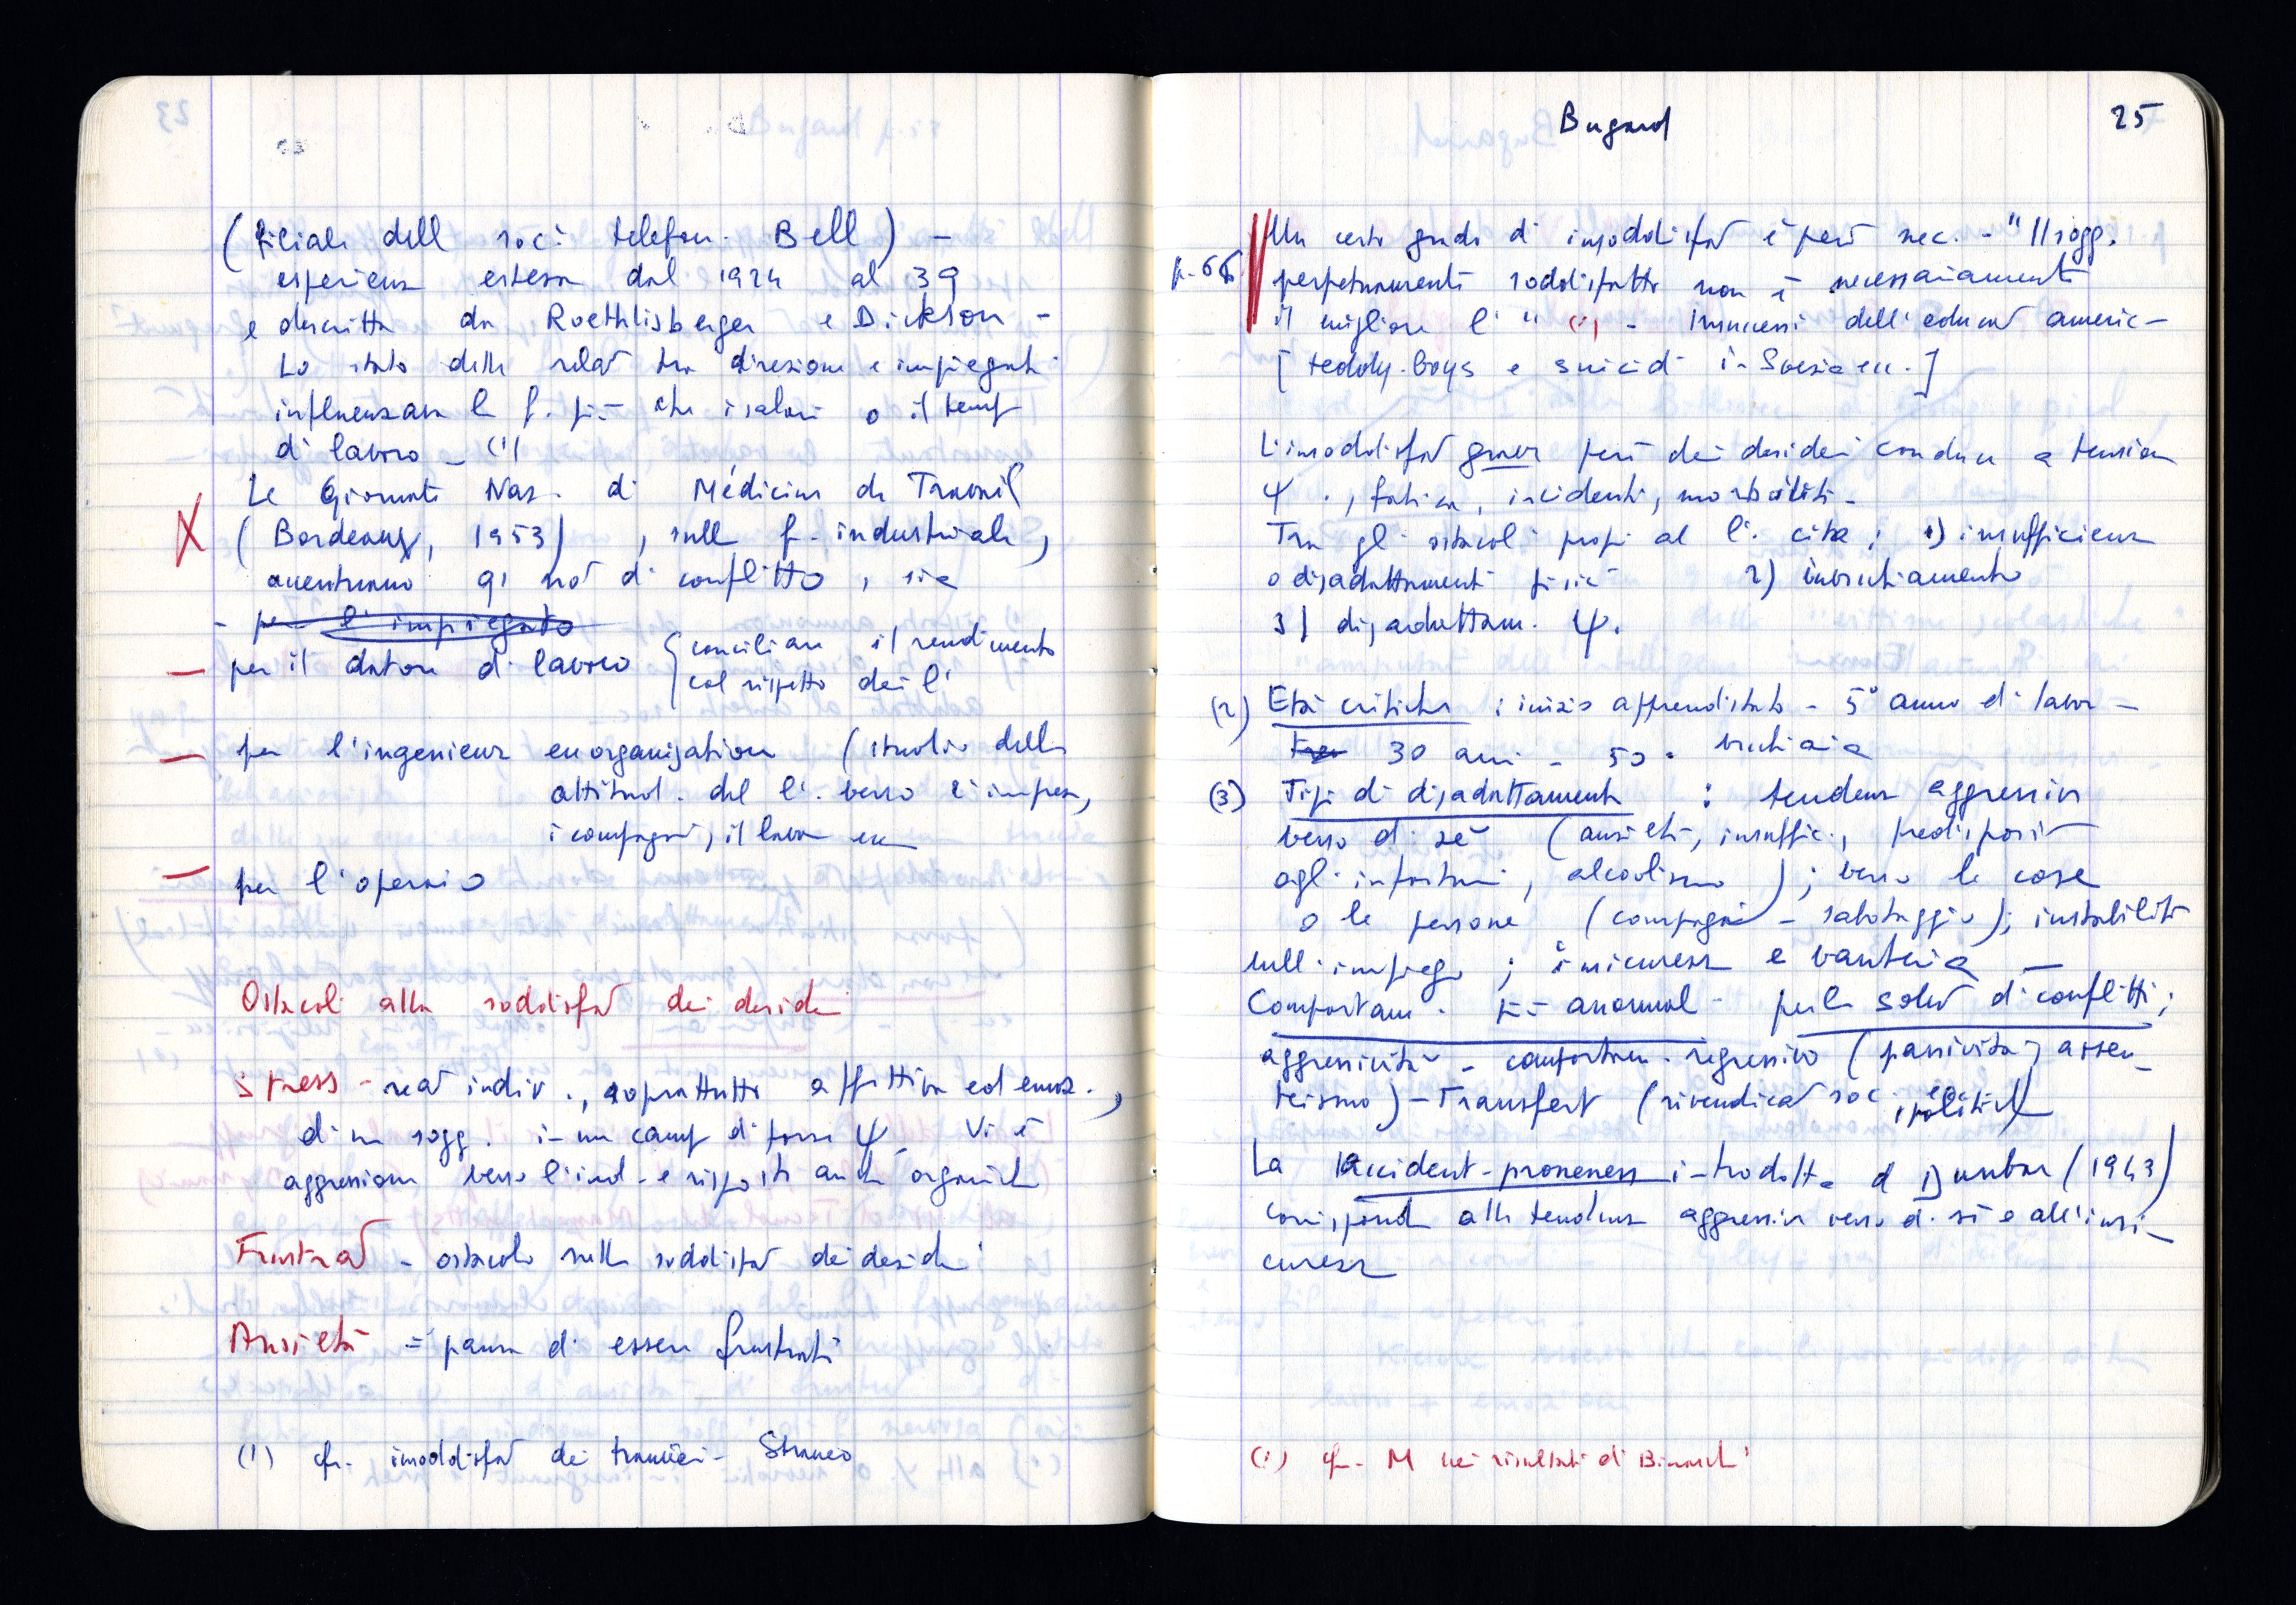 (filiale dell soc. telefon. Bell) -
esperienza estesa dal 1924 al 39
e descritta da Roethlisberger e Dickson -
Lo stato delle relaz tra direzione e impiegati
influenzava la f. più che i salari o il tempo
di lavoro - (1)
Le Giornate Naz. di Médicine du Travail
(Bordeaux, 1953), sulla f. industriale,
accentuano qs di conflitto, sia
- per l'impiegato
- per il datore di lavoro { conciliare il rendimento
col rispetto dei l'
- per l'ingenieur en organisation (studio della
attitud. del l'. verso l'impresa,
i compagni, il lavoro ecc
- per l'operaio
Ostacoli alla soddisfaz dei desideri
Stress - reaz indiv., soprattutto affettiva ed emoz.,
di un sogg. in un campo di forze ψ. Vi è
aggressione verso l'ind - e risposte anche organiche
Frustraz - ostacolo nella soddisfaz dei desideri
Ansietà = paura di essere frustrati
(1) cfr. insoddisfaz dei tranvieri - Straneo
Bugard
25
p. 66
Un certo grado di insoddisfaz è però nec. - "Il sogg.
perpetuamente soddisfatto non è necessariamente
il migliore l'" (1) - Insuccessi dell'educaz americ -
[teddy-boys e suicidi in Svezia ecc.]
L'insoddisfaz grave però dei desideri conduce a tensione
ψ., fatica, incidenti, morbilità -
Tra gli ostacoli propri al l'. cita: 1) insufficienza
o disadattamenti fisici 2) invecchiamento
3) disadattam. ψ.
(2) Età critiche: inizio apprendistato - 5° anno di lavoro -
30 anni - 50 - vecchiaia
(3) Tipi di disadattamento: tendenza aggressiva
verso di sé (ansietà, insuffic., predisposiz
agli infortuni, alcoolismo); verso le cose
o le persone (compagni - sabotaggio); instabilità
nell'impiego; insicurezza e vanteria -
Comportam. più anormali per la soluz di conflitti:
aggressività - comportam. regressivo (passività, assen-
teismo) - Transfert (rivendicaz soc. e politiche)
La accident-proneness introdotta da Dunbar (1943)
corrisponde alla tendenza aggressiva verso di sé e all'insi-
curezza
(1) cfr. M nei risultati di Bianchi